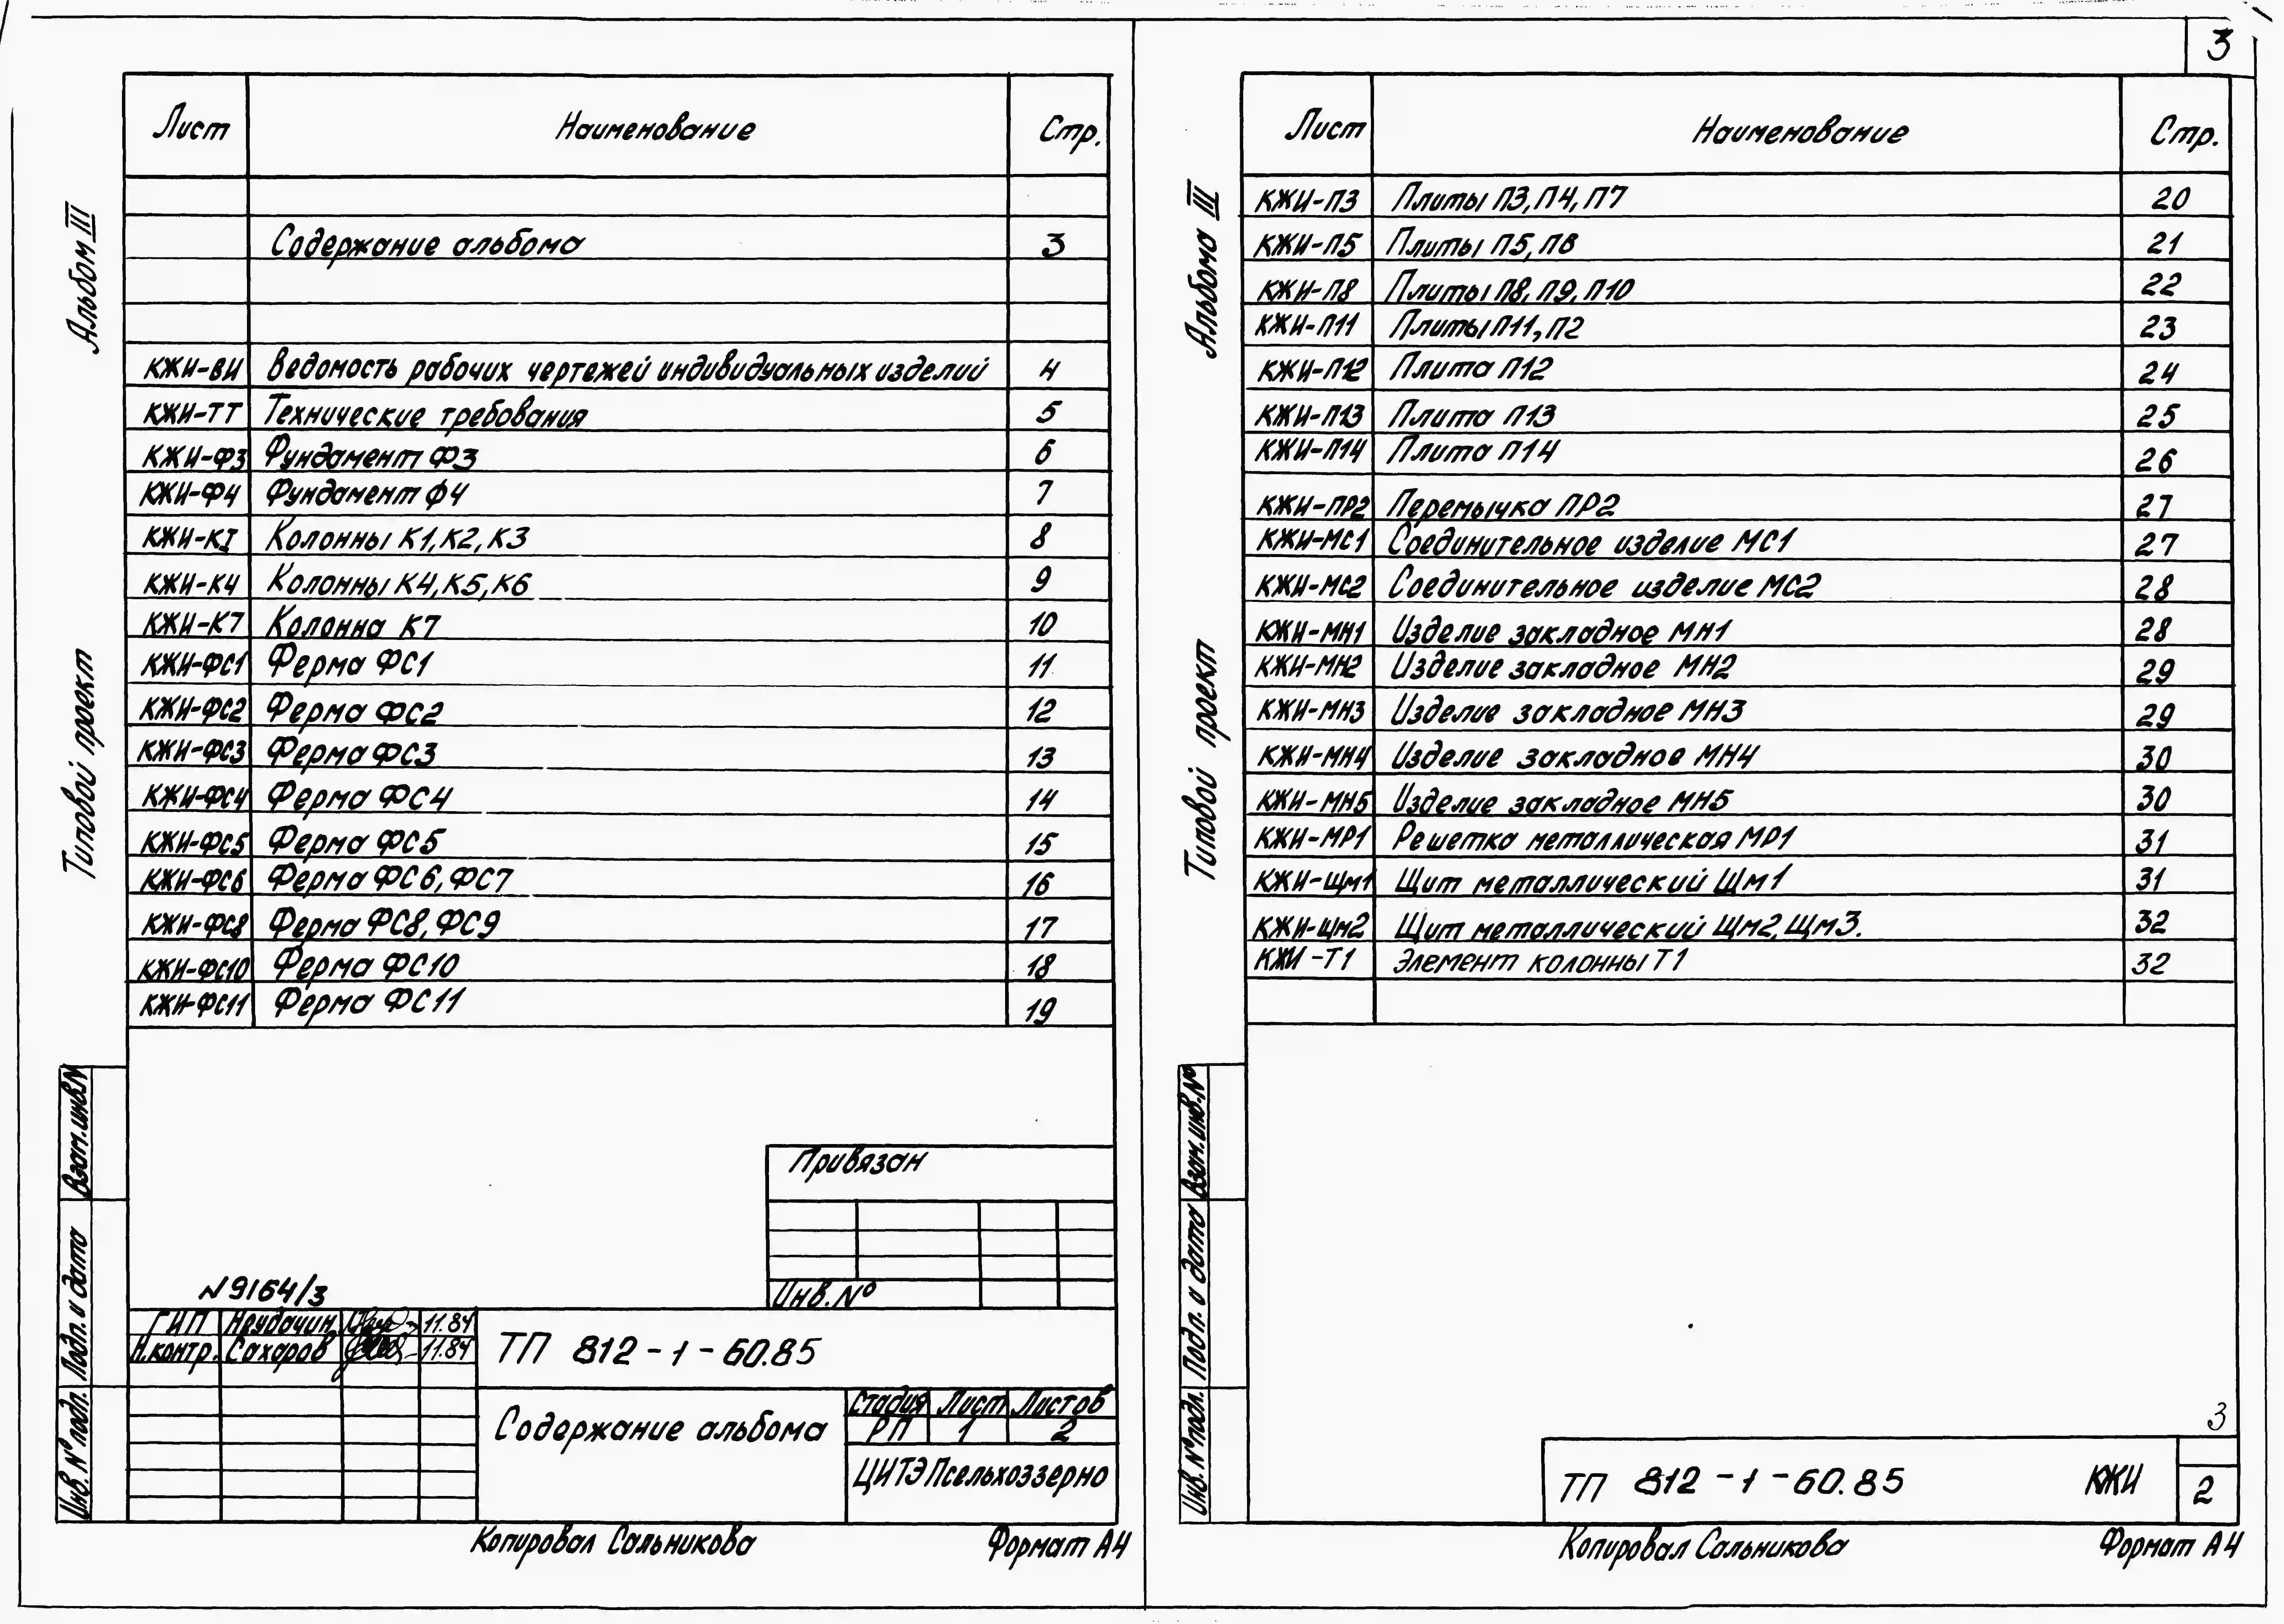 Альбом III
Типовой проект
Лист Наименование Стр.
Содержание альбома 3
КЖИ-ВИ Ведомость рабочих чертежей индивидуальных изделий 4
КЖИ-ТТ Технические требования 5
КЖИ-Ф3 Фундамент Ф3 6
КЖИ-Ф4 Фундамент Ф4 7
КЖИ-КI Колонны К1,К2,К3 8
КЖИ-К4 Колонны К4,К5,К6 9
КЖИ-К7 Колонна К7 10
КЖИ-ФС1 Ферма ФС1 11
КЖИ-ФС2 Ферма ФС2 12
КЖИ-ФС3 Ферма ФС3 13
КЖИ-ФС4 Ферма ФС4 14
КЖИ-ФС5 Ферма ФС5 15
КЖИ-ФС6 Ферма ФС6,ФС7 16
КЖИ-ФС8 Ферма ФС8,ФС9 17
КЖИ-ФС10 Ферма ФС10 18
КЖИ-ФС11 Ферма ФС11 19
Взам.инв.N
Подп. и дата
Инв.N°подл.
Привязан
Инв.N°
N9164/3
ГИП Неудачин 11.84
Н.контр. Сахаров 11.84
ТП 812-1-60.85
Содержание альбома
Стадия Лист Листов
РП 1 2
ЦИТЭПсельхоззерно
Копировал Сальникова Формат А4
3
Альбома III
Типовой проект
Лист Наименование Стр.
КЖИ-П3 Плиты П3,П4,П7 20
КЖИ-П5 Плиты П5,П6 21
КЖИ-П8 Плиты П8,П9,П10 22
КЖИ-П11 Плиты П11,П2 23
КЖИ-П12 Плита П12 24
КЖИ-П13 Плита П13 25
КЖИ-П14 Плита П14 26
КЖИ-ПР2 Перемычка ПР2 27
КЖИ-МС1 Соединительное изделие МС1 27
КЖИ-МС2 Соединительное изделие МС2 28
КЖИ-МН1 Изделие закладное МН1 28
КЖИ-МН2 Изделие закладное МН2 29
КЖИ-МН3 Изделие закладное МН3 29
КЖИ-МН4 Изделие закладное МН4 30
КЖИ-МН5 Изделие закладное МН5 30
КЖИ-МР1 Решетка металлическая МР1 31
КЖИ-Щм1 Щит металлический Щм1 31
КЖИ-Щм2 Щит металлический Щм2,Щм3. 32
КЖИ-Т1 Элемент колонны Т1 32
Взам.инв.N°
Подп. и дата
Инв.N°подл.
3
ТП 812-1-60.85 КЖИ 2
Копировал Сальникова Формат А4